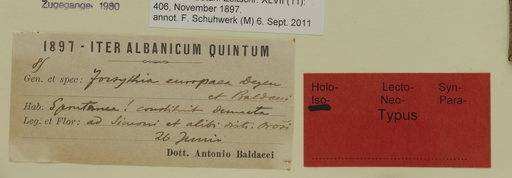 Zugegangen 1980
Zeitschr. XLVII (11):
406, November 1897.
annot. F. Schuhwerk (M) 6. Sept. 2011
1897 - ITER ALBANICUM QUINTUM
85
Gen. et spec: Forsythia europaea Degen
et Baldacci
Hab. Spontanea! constituit dumeta
Leg. et Flor: ad Simoni et alibi distr. Oroši
26 Junii
Dott. Antonio Baldacci
Holo- Lecto- Syn-
Iso- Neo- Para-
Typus